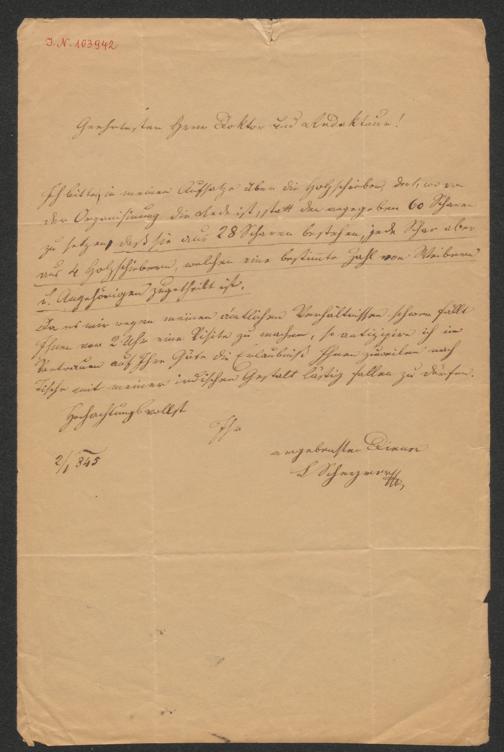 I.N. 103942
Geehrtesten Herrn Doktor und Redakteur!
Ich bitte, in meinem Aufsatze über die Holzschieber, dort, wo von
der Organisirung die Rede ist, statt den angegeben 60 Scharen
zu setzen, daß sie aus 28 Scharen bestehen, jede Schar aber
aus 4 Holzschiebern, welchen eine bestimte Zahl von Weibern
u. Angehörigen zugetheilt ist.
Da es mir wegen meinen ämtlichen Verhältnissen schwer fällt
Ihnen vor 2 Uhr eine Visite zu machen, so antizipire ich im
Vertrauen auf Ihre Güte die Erlaubniß Ihnen zuweilen nach
Tische mit meiner irdischen Gestalt lästig fallen zu dürfen.
Hochachtungsvollst
Ihr
ergebenster Diener
2/1 845